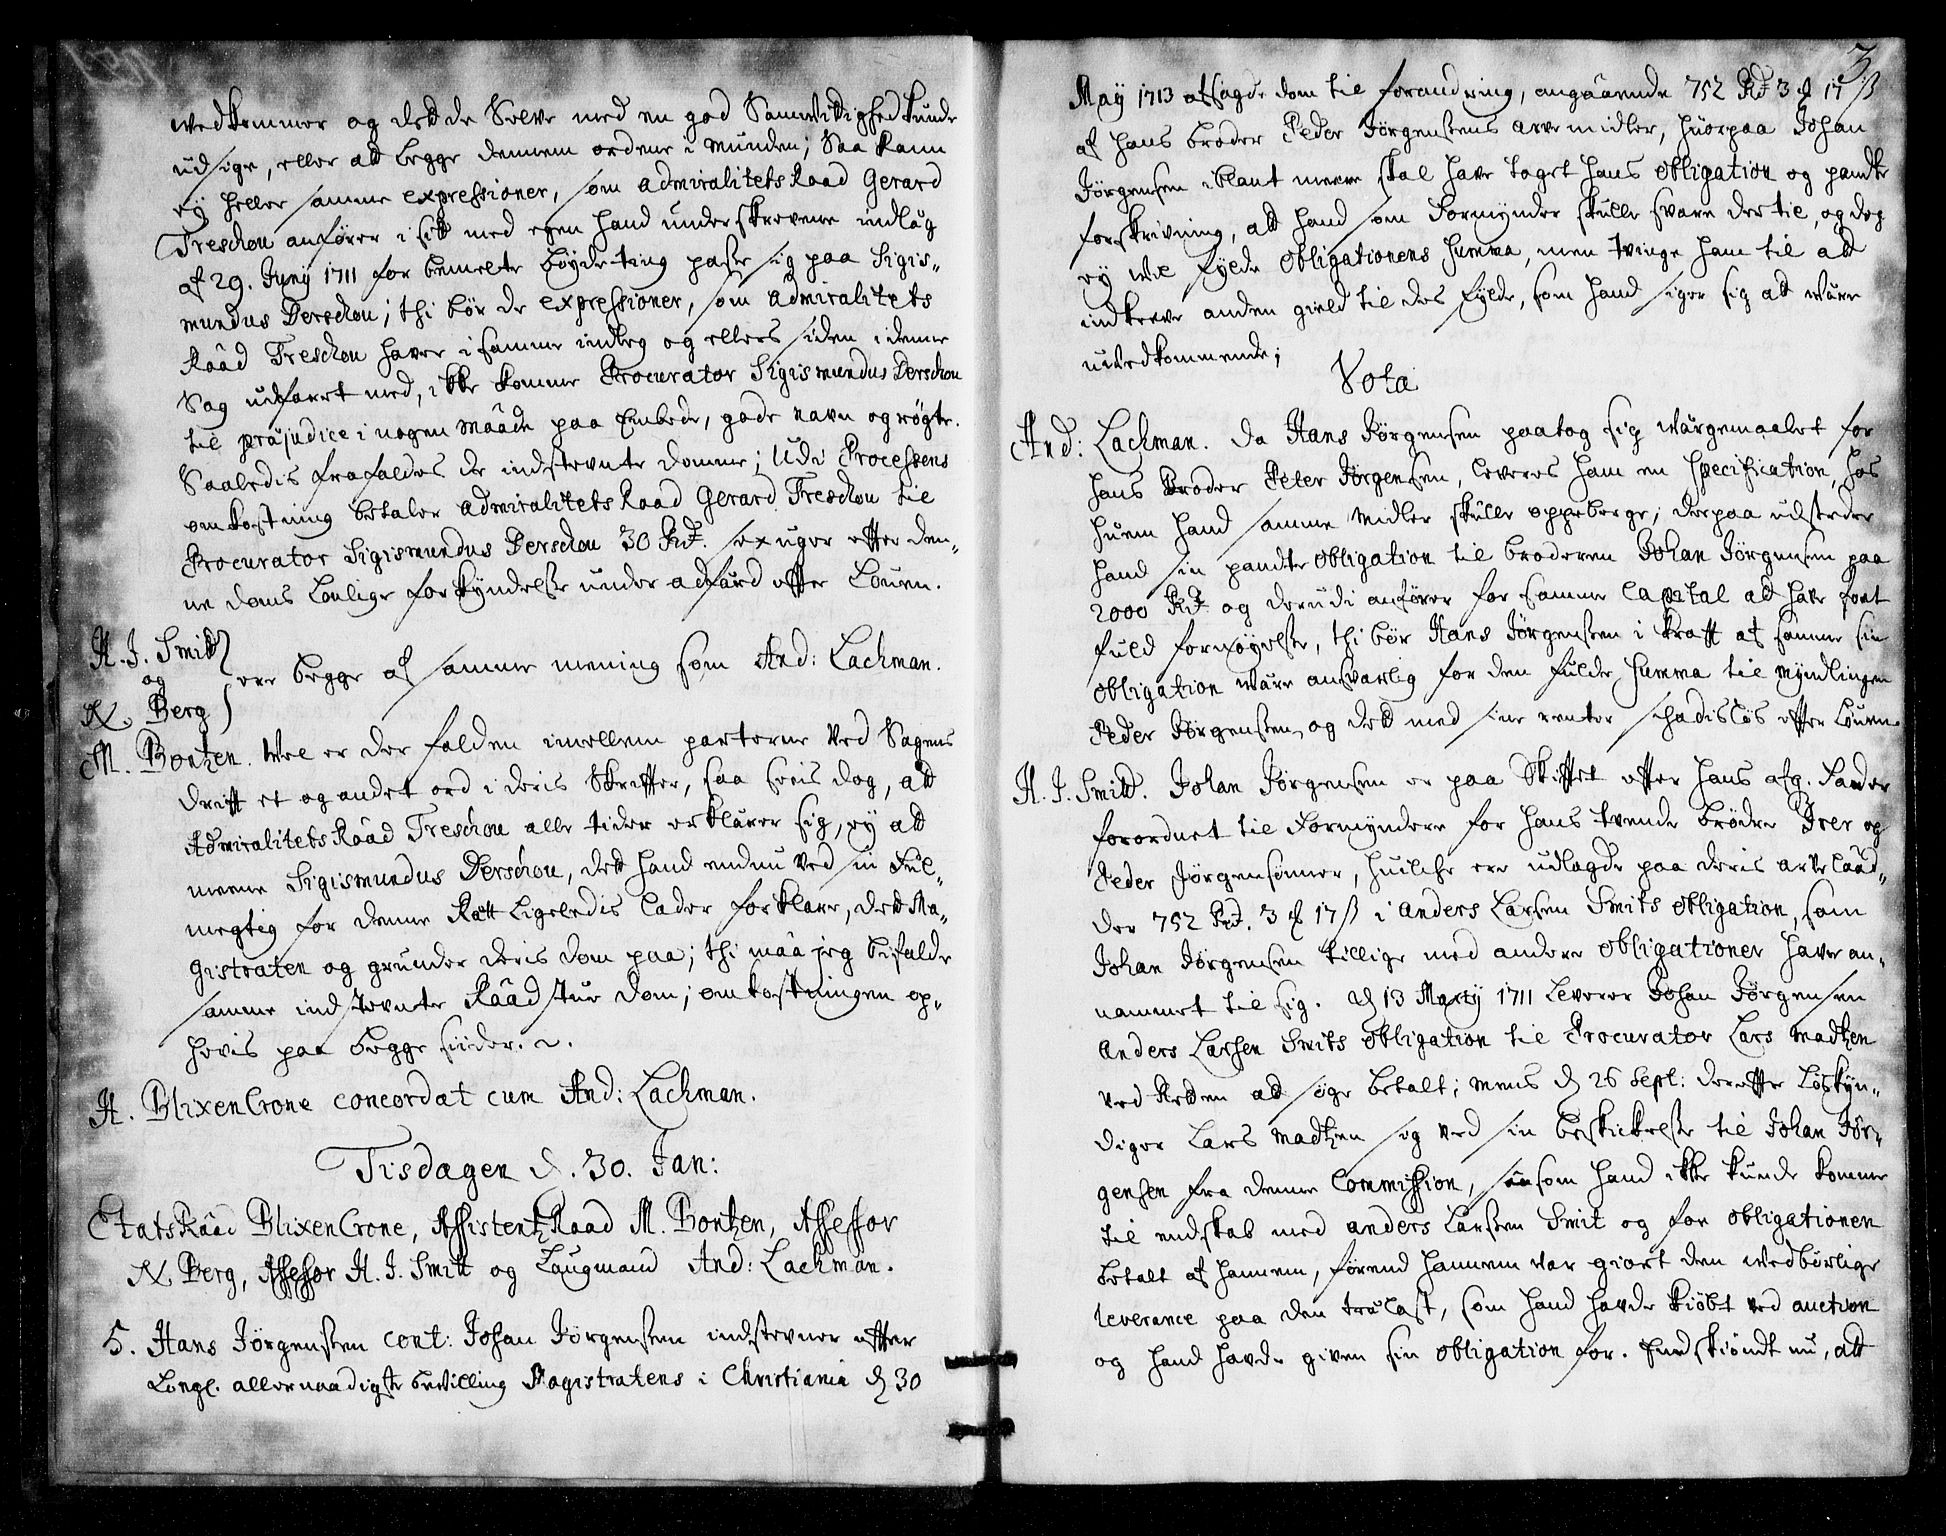 vedkommer og dette Selve med en god Samvittighed kunde
udsige, eller att legge dennem ordene i munden; Saa kann
ey heller samme expressioner, som Admiralitets Raad Gerard
Treschou anfører i sitt med egen hand underskrevene indlæg
af 29. Juny 1711 for bemelte böyde ting passe sig paa Sigis„
mundus Derschou; thi bör de expressioner, som Admiralitets
Raad Treschou haver i samme indleg og ellers siden i denne
Sag udfaret med, ikke komme Procurator Sigismundus Derschou
til præjudice i nogen maade paa Embede, gode navn og rögte.
Saaledis frafaldes de indstevnte Domme; Udi Processens
omkostning betaler Admiralitets Raad Gerard Treschou til
Procurator Sigismundus Derschou 30 Rdr. sex uger effter den„
ne doms Lovlige forkyndelse under adfærd effter Loven.
H. J. Smitt
og
N. Berg
ere begge af samme mening som And: Lachman.
M. Bontzen. Vel er der falden imellem parterne ved Sagens
drifft et og andet ord i deris Skriffter, saa sees dog, att
Admiralitets Raad Treschou alle tider erklærer sig, ey att
meene Sigismundus Derschou, dett hand endnu ved sin Ful„
megtig for denne Rett ligeledis lader forklare, dett Ma„
gistraten og grunder deris dom paa; thi maa jeg bifalde
samme indstevnte Raadstue Dom; omkostningen op„
hevis paa begge siider.
H. BlixenCrone concordat cum And: Lachman.
Tisdagen d. 30. Jan:
Etats Raad BlixenCrone, Assistentz Raad M. Bontzen, Assessor
N. Berg, Assessor H. J. Smitt og Laugmand And: Lachman.
5. Hans Jörgensen cont: Johan Jörgensen indstevner effter
Kongl. allernaadigste bevilling Magistratens i Christiania d 30
3
May 1713 afsagde dom til forandring, angaaende 752 Rdr 3 ₰ 17 β
af hans broder Peder Jörgensens arve midler, huorpaa Johan
Jörgensen iblant meere skal have taget hans obligation og pandte
forskrivning, att hand som Formynder skulle svare der til, og dog
ey vil fylde obligationens Summa, men tvinge ham til att
indkreve anden gield til des fylde, som hand siger sig att være
uvedkommende;
Vota
And: Lachman. Da Hans Jörgensen paatog sig Værgemaalet for
hans Broder Peter Jörgensen, leveres ham en Specification, hos
huem hand samme Midler skulle oppeberge; derpaa udsteder
hand sin pandte obligation til broderen Johan Jörgensen paa
2000 Rdr og derudi anförer for samme Capital att have faaet
fuld fornöyelse, thi bör Hans Jörgensen i krafft af samme sin
obligation være ansvarlig for den fulde Summa til myndlingen
Peder Jörgensen, og dett med sine renter skadislös effter Loven.
H. J. Smitt. Johan Jörgensen er paa Skifftet effter hans afg. Fader
forordnet til Formyndere for hans tvende brödre Iver og
Peder Jörgensönner, huilche ere udlagde paa deris arvelaad„
der 752 Rdr. 3 ₰ 17 β i Anders Larsen Smits obligation, som
Johan Jörgensen tillige med andere obligationer haver an„
nammet til sig. d 13 Marty 1711 Leverer Johan Jörgensen
Anders Larsen Smits obligation til Procurator Lars Madtzen
ved Retten att söge betalt; mens d 26 Sept: dereffter Löskyn„
diger Lars Madtzen sig ved sin beskickelse til Johan Jör„
gensen fra denne Commission, saasom hand ikke kunde komme
til endskab med Anders Larsen Smit og for obligationen
betalt af hannem, förend hannem var giort den vedbörlige
leverance paa den trælast, som hand havde kiöbt ved auction
og hand havde given sin obligation for. Endskiöndt nu, att